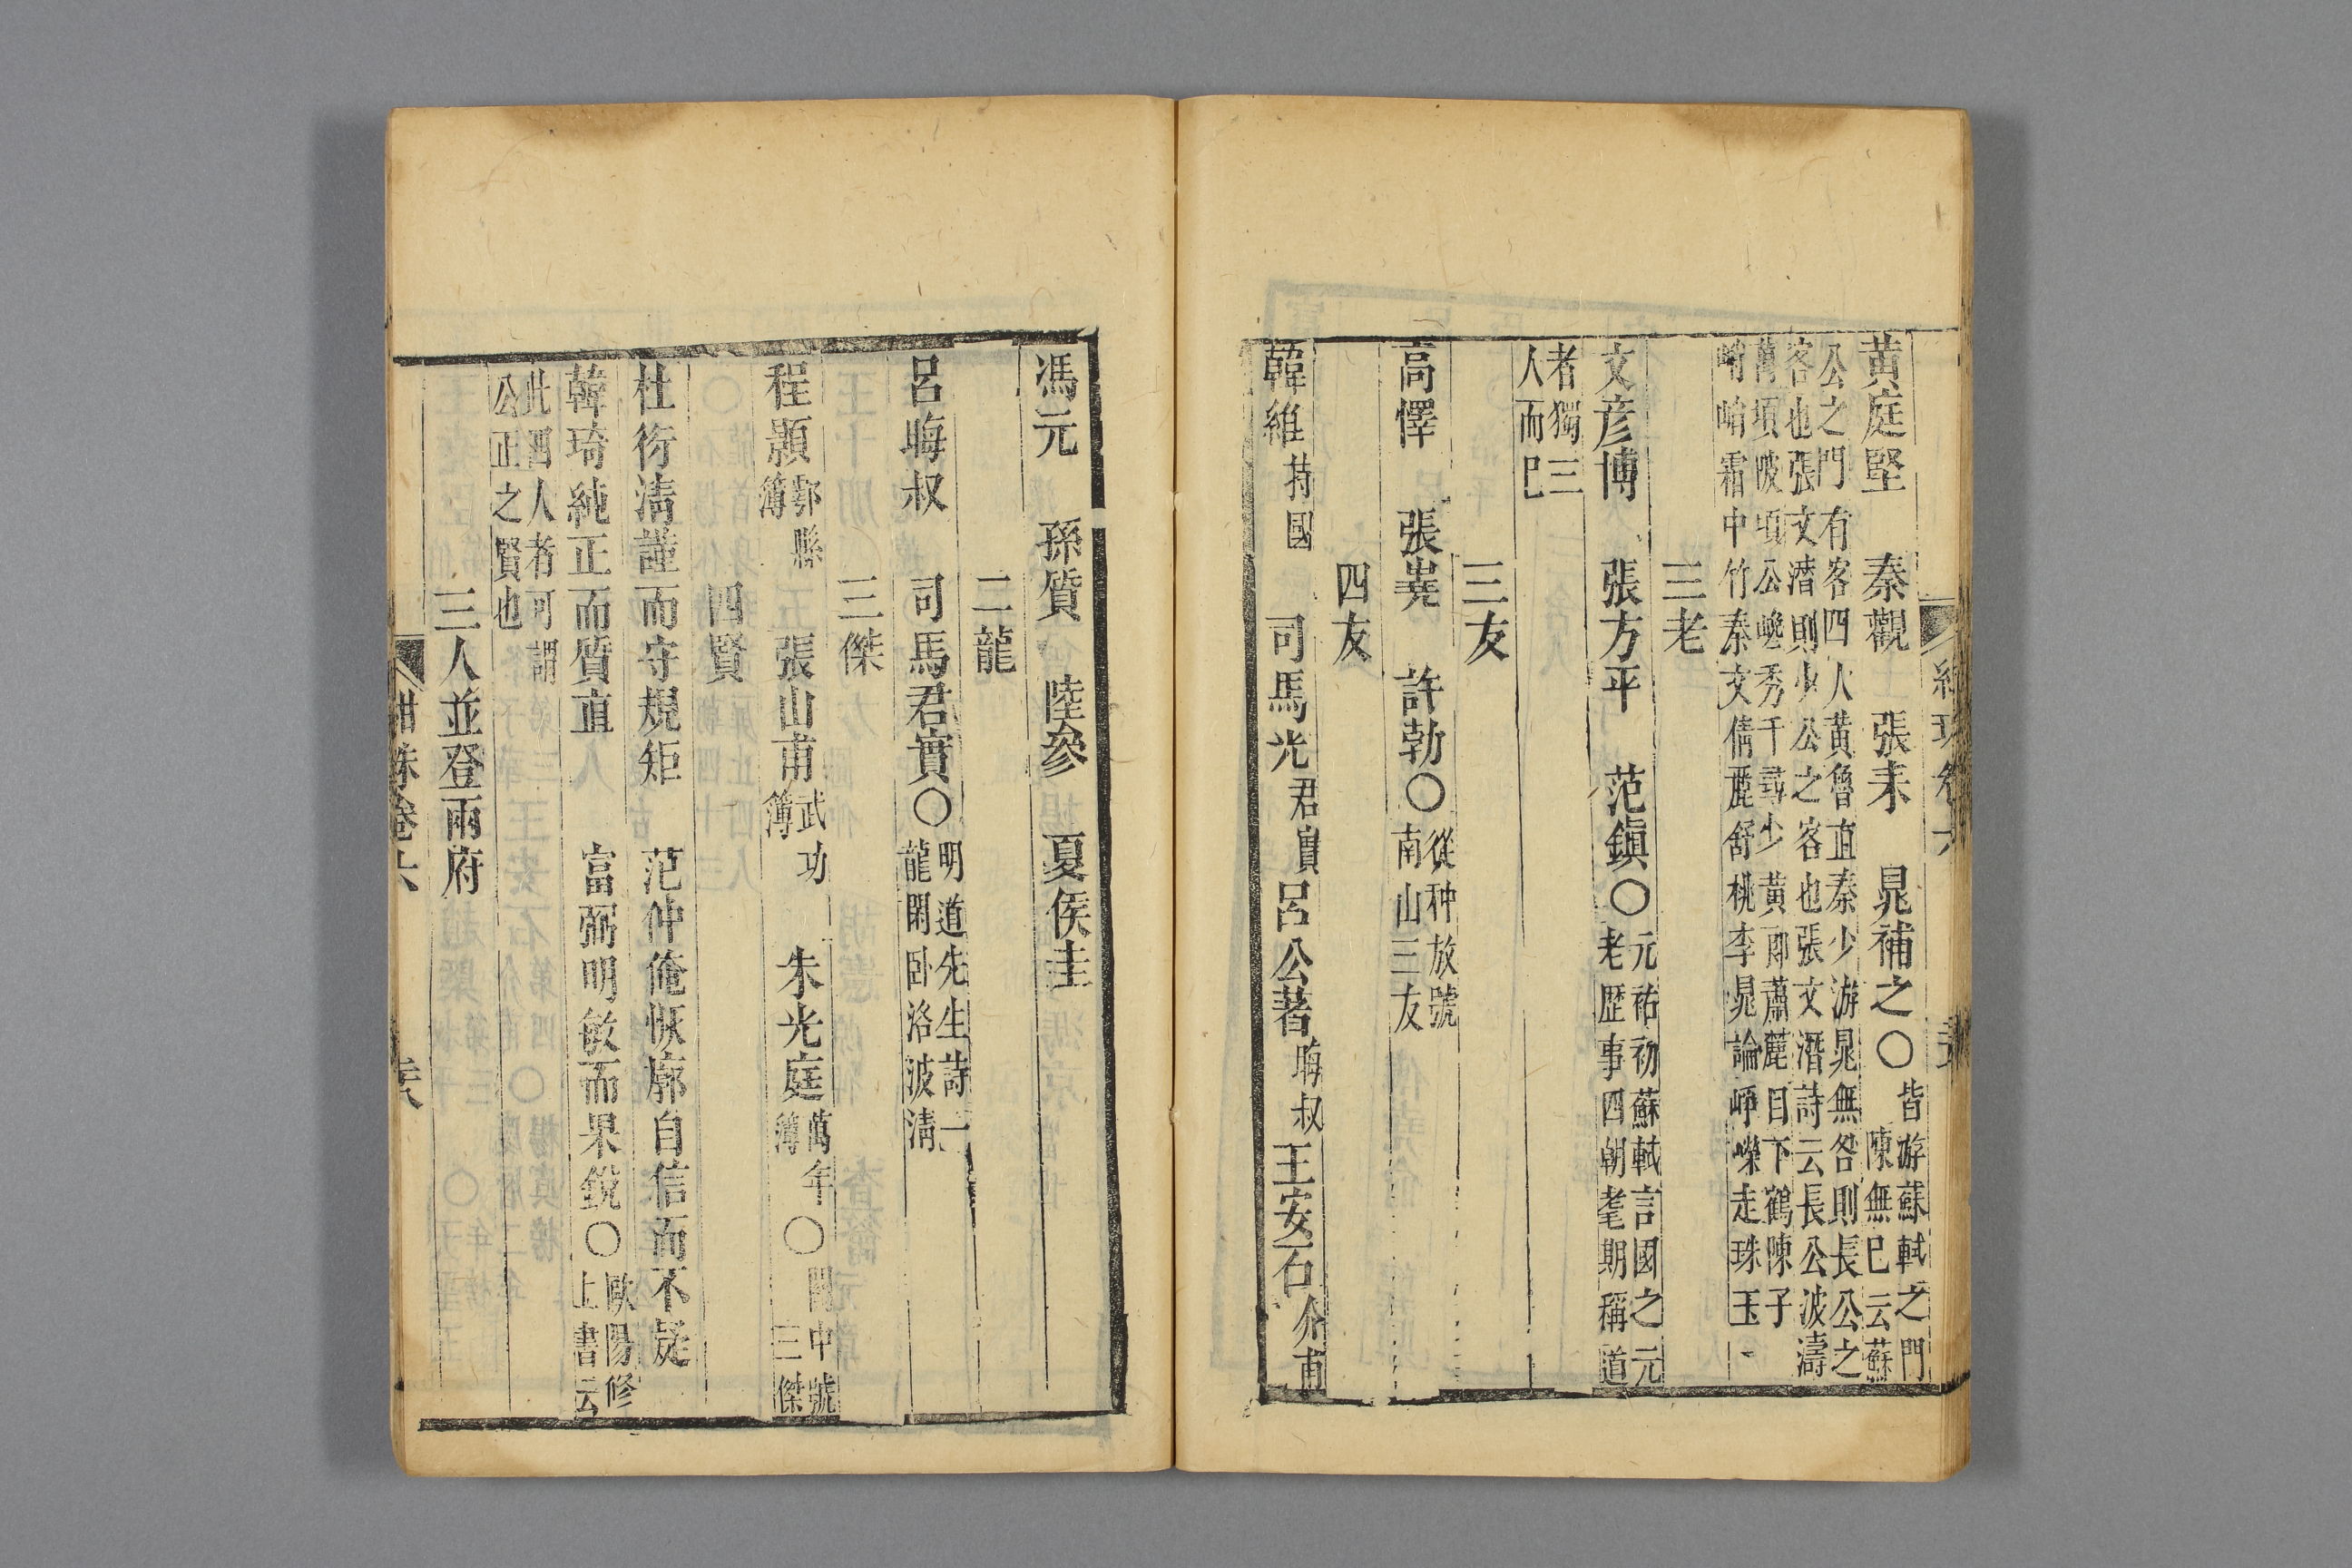 黄庭堅　秦觀　張耒　晁補之〇皆游蘇軾之門
陳無巳云蘇
公之門有客四人黄魯直秦少游晁無咎則長公之
客也張文濳則少公之客也張文濳詩云長公波濤
萬頃陂頃公巉秀千尋少黄郎蕭蕭日下鶴陳子
峭峭霜中竹秦文倩麗舒桃李晁論崢嶸走珠玉
三老
文彦博　張方平　范鎮〇元祐初蘇軾言國之元
老歴事四朝耄期稱道
者獨三
人而巳
三友
高懌　張嶤　許勃〇從种放號
南山三友
四友
韓維持國　司馬光君實呂公著晦叔王安石介甫
馮元　孫質　陸參　夏侯圭
二龍
呂晦叔　司馬君實〇明道先生詩二
龍閑卧洛波淸
三傑
程顥鄠縣簿　張山甫武功簿　朱光庭萬年簿〇關中號
三傑
四賢
杜衍淸謹而守規矩　范仲俺恢廓自信而不疑
韓琦純正而質直　富弼明敏而果銳〇歐陽修
上書云
此四人者可謂
公正之賢也
三人並登兩府
紺珠卷六